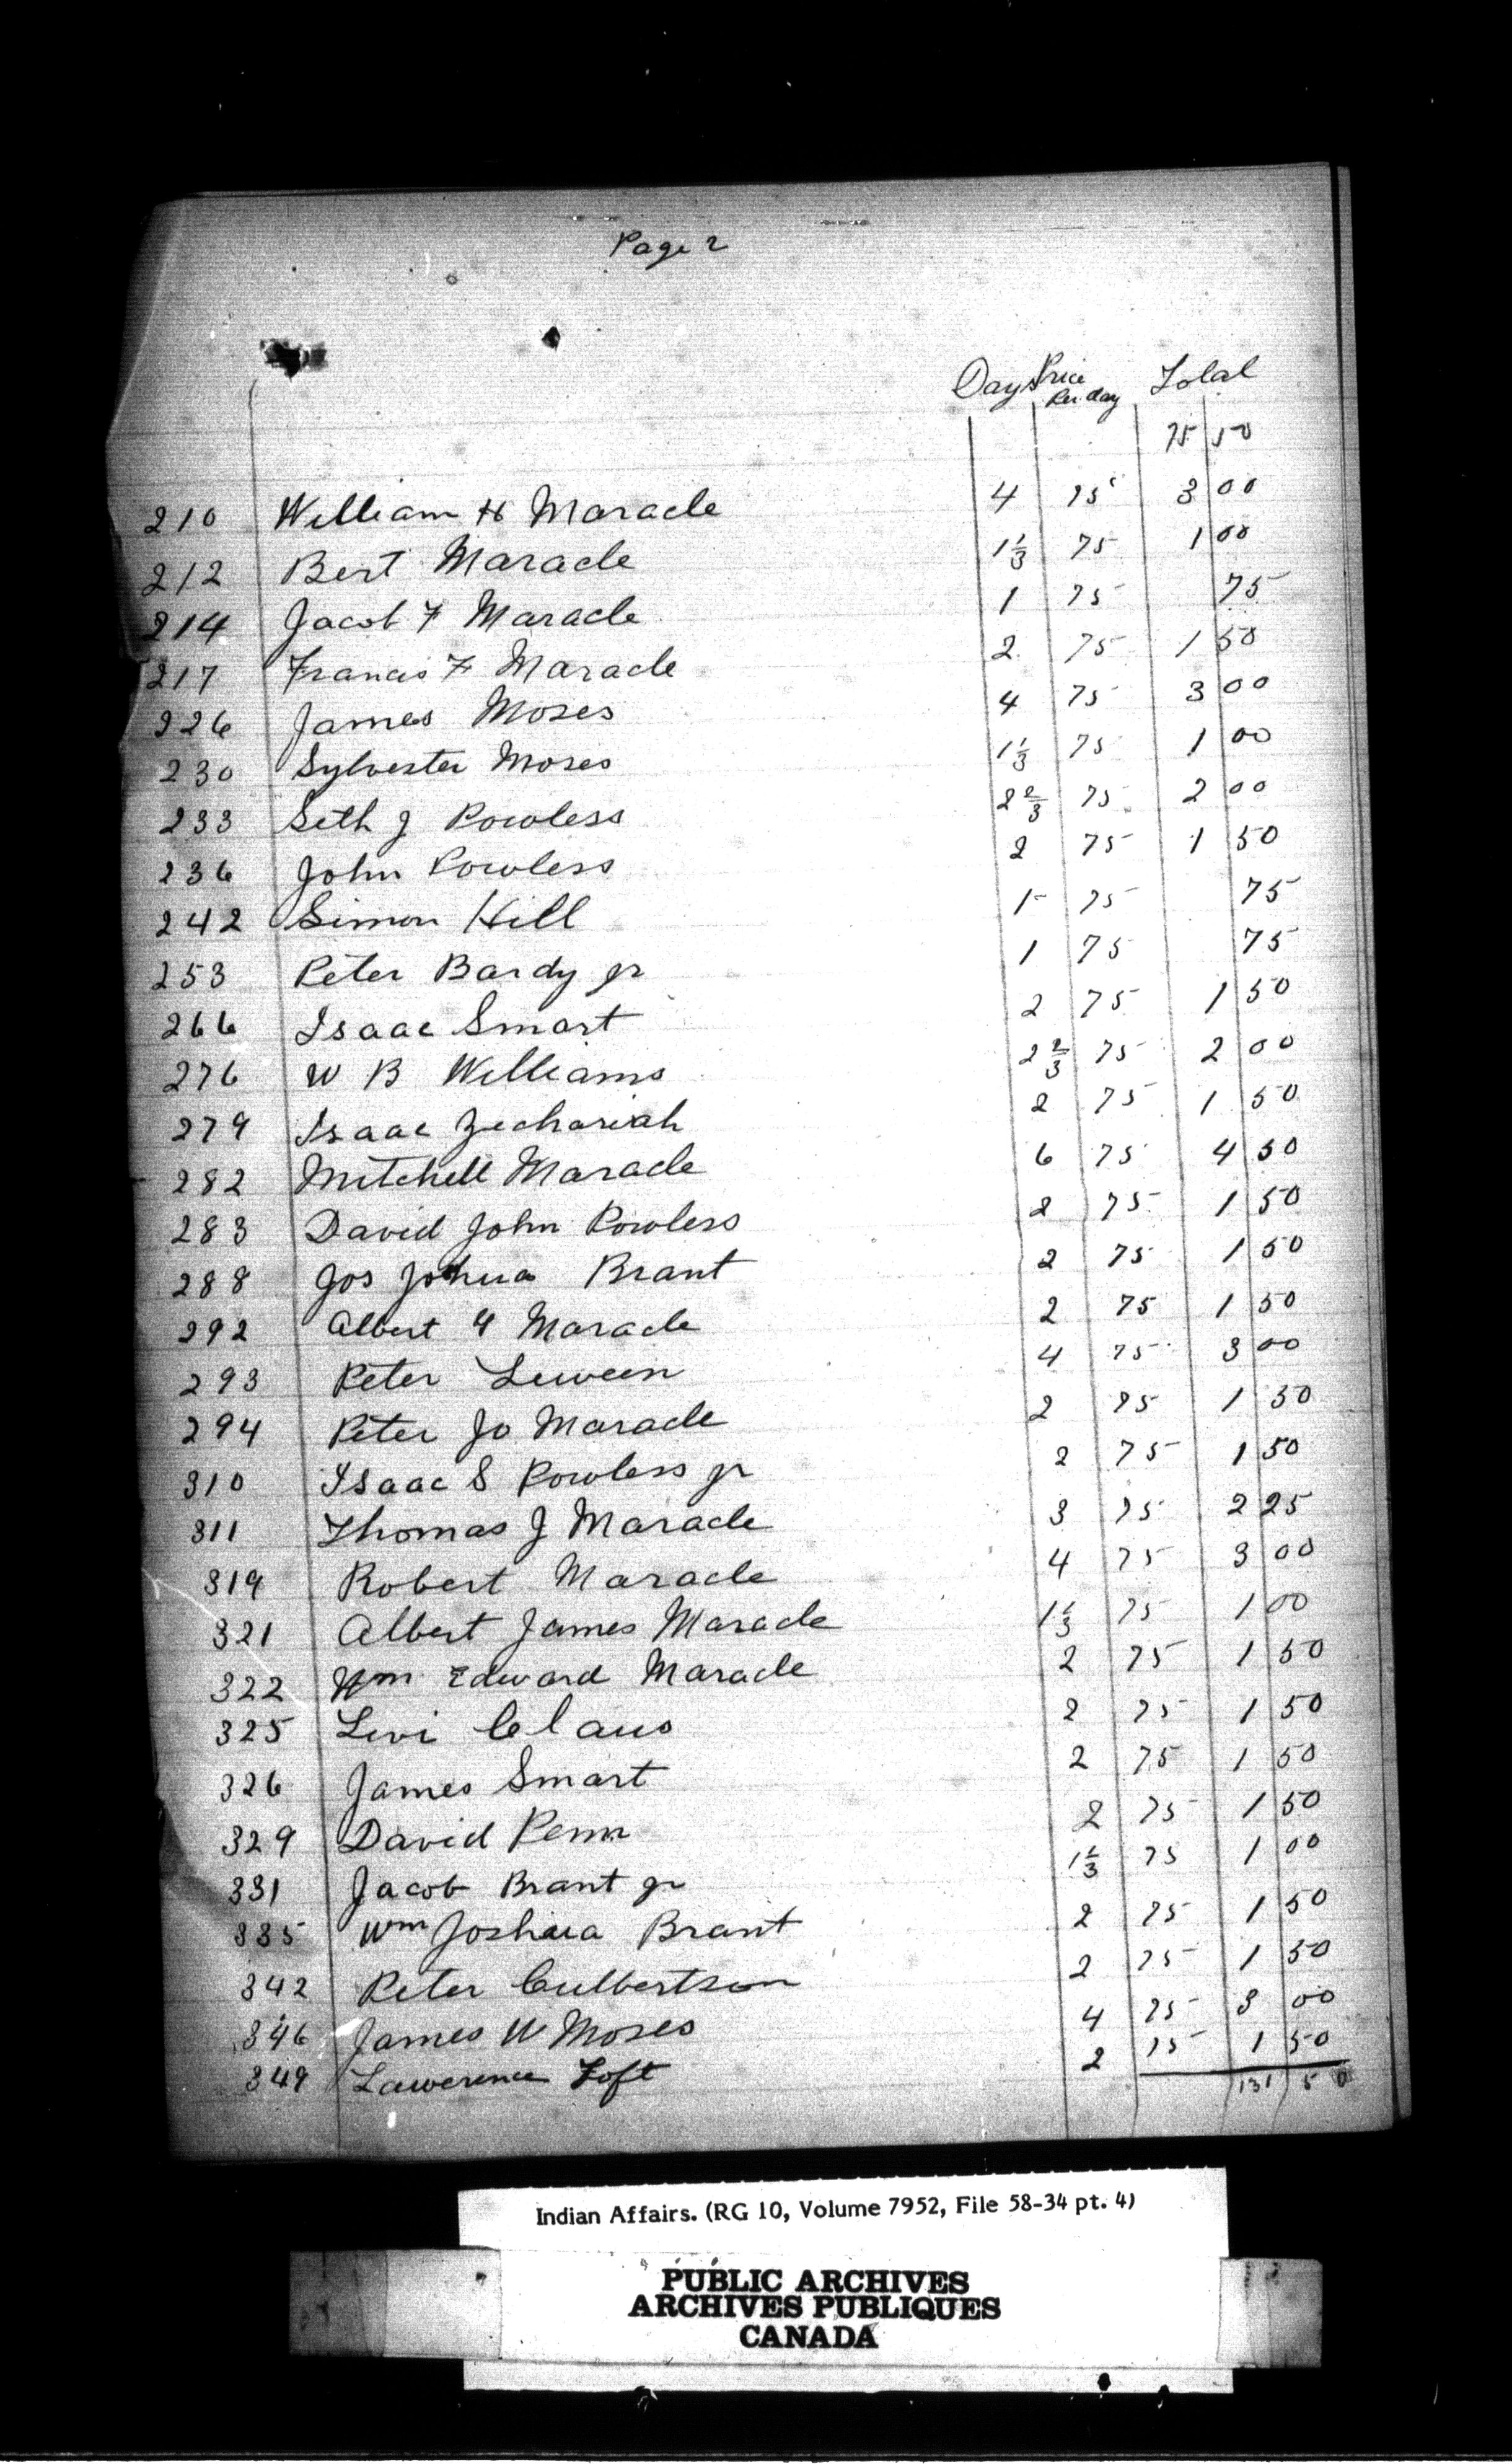 Page 2
Days Price Per day Total
75 50
210 William H Maracle 4 75 3 00
212 Bert Maracle 1 1/3 75 1 00
214 Jacob F Maracle 1 75 75
217 Francis F Maracle 2 75 1 50
226 James Moses 4 75 3 00
230 Sylvester Moses 1 1/3 75 1 00
233 Seth J Powless 2 2/3 75 2 00
236 John Powless 2 75 1 50
242 Simon Hill 1 75 75
253 Peter Bardy jr 1 75 75
266 Isaac Smart 2 75 1 50
276 W B Williams 2 2/3 75 2 00
279 Isaac Zechariah 2 75 1 50
282 Mitchell Maracle 6 75 4 50
283 David John Powless 2 75 1 50
288 Jos Johua Brant 2 75 1 50
292 Albert G Maracle 2 75 1 50
293 Peter Leween 4 75 3 00
294 Peter Jo Maracle 2 75 1 50
310 Isaac S Powless jr 2 75 1 50
311 Thomas J Maracle 3 75 2 25
319 Robert Maracle 4 75 3 00
321 Albert James Maracle 1 1/3 75 1 00
322 Wm Edward Maracle 2 75 1 50
325 Levi Claus 2 75 1 50
326 James Smart 2 75 1 50
329 David Penn 2 75 1 50
331 Jacob Brant jr 1 1/3 75 1 00
335 Wm Joshua Brant 2 75 1 50
342 Peter Culbertson 2 75 1 50
346 James W Moses 4 75 3 00
349 Lawerence Loft 2 75 1 50
131 50
Indian Affairs. (RG 10, Volume 7952, File 58-34 pt. 4)
PUBLIC ARCHIVES
ARCHIVES PUBLIQUES
CANADA